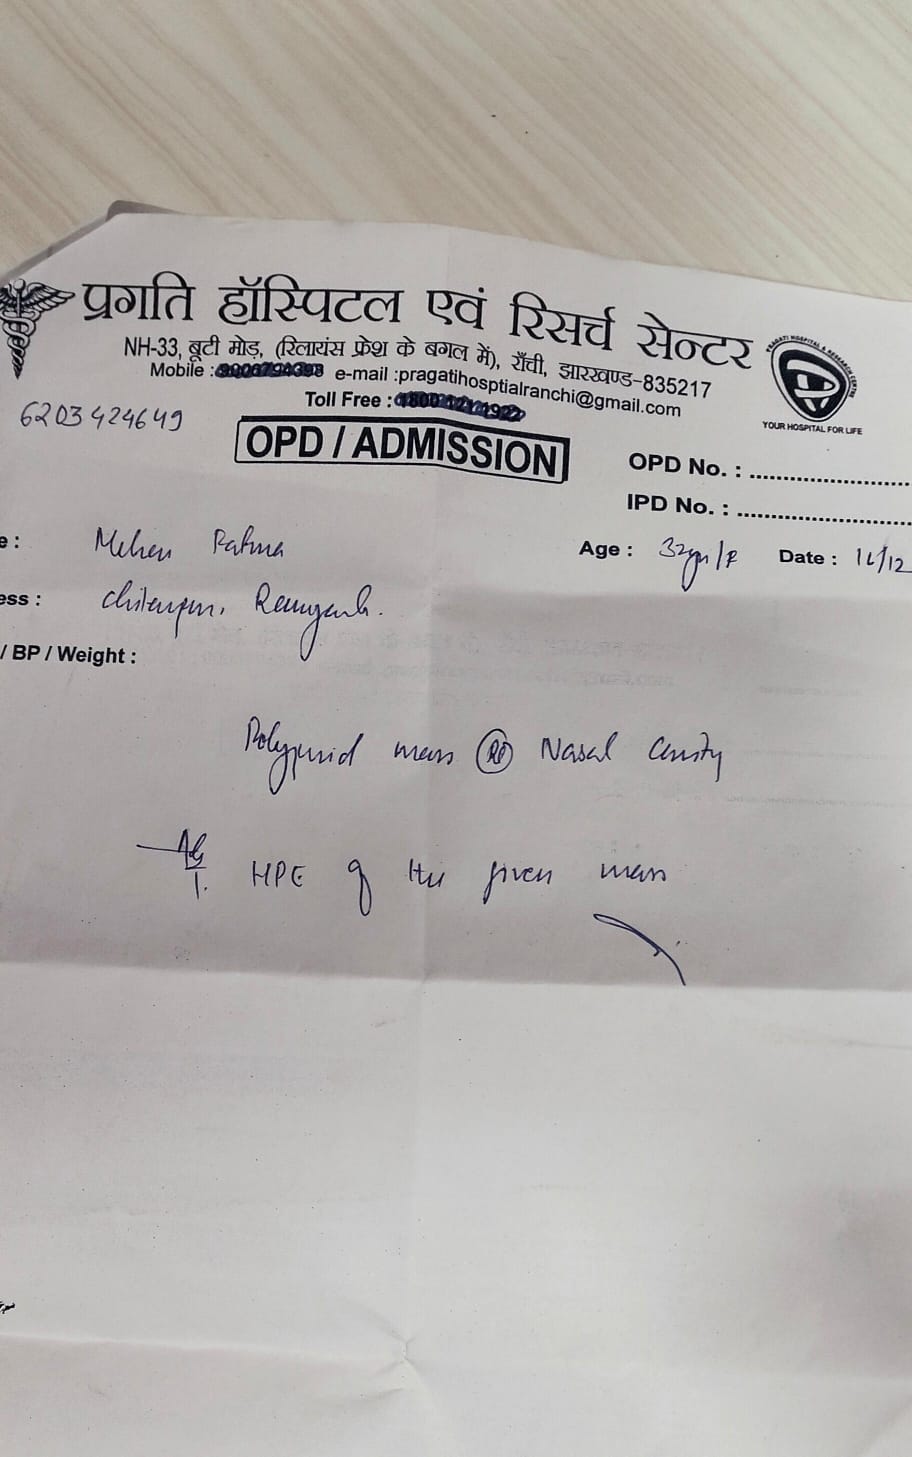 प्रगति हॉस्पिटल एवं रिसर्च सेन्टर
NH-33, बूटी मोड़, (रिलायंस फ्रेश के बगल में), राँची, झारखण्ड-835217
Mobile : e-mail :pragatihosptialranchi@gmail.com
Toll Free :
PRAGATI HOSPITAL & RESEARCH CENTRE
YOUR HOSPITAL FOR LIFE
6203424649
OPD / ADMISSION
OPD No. : ..........
IPD No. : ..........
e : Age : 32yr/F Date : /12
ess :
/ BP / Weight :
Polypoid mass Nasal Cavity
HPE of the given mass